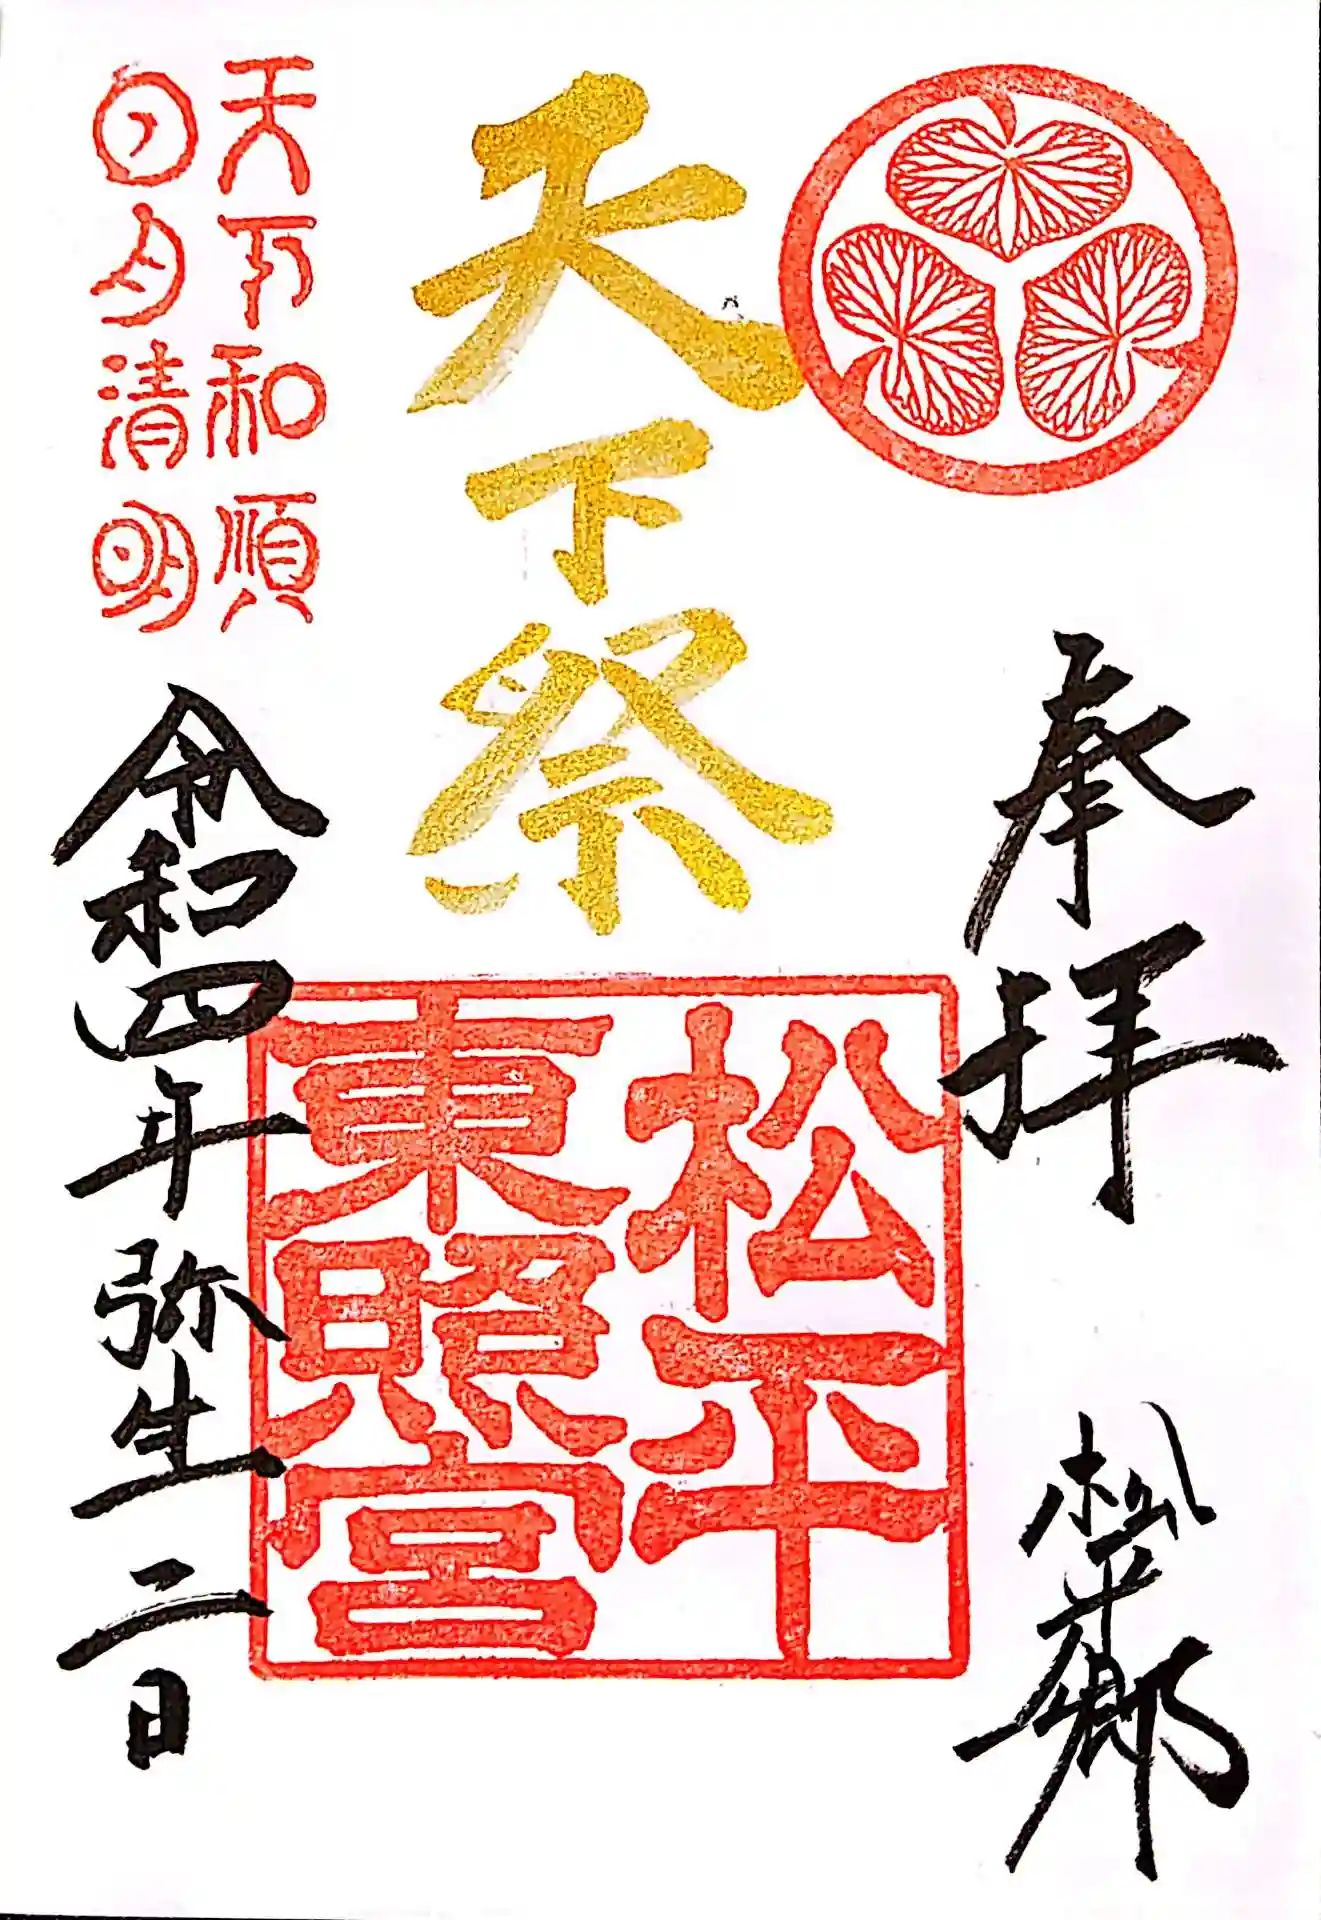 奉拝
松平郷
天下祭
松平
東照宮
天下和順
日月清明
令和四年弥生二日